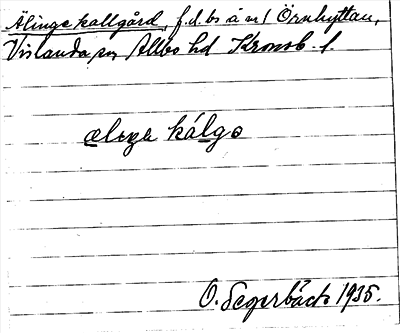 Älinge kallgård, f.d. bs å nr 1 Örnhyttan,
Vislanda sn Allbo hd Kronob. l.
ælıŋa kálgo
O. Segerbäck 1935.